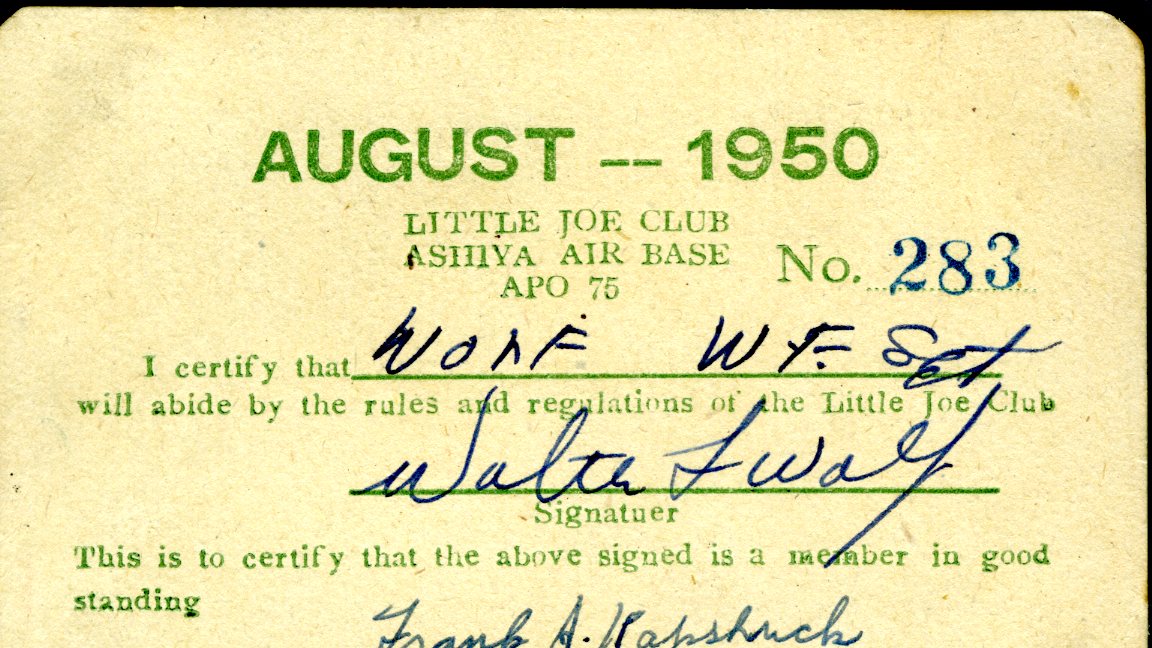 AUGUST -- 1950
LITTLE JOE CLUB
ASHIYA AIR BASE
APO 75
No. 283
I certify that WOLF W F. Sgt
will abide by the rules and regulations of the Little Joe Club
Walter F Wolf
Signatuer
This is to certify that the above signed is a member in good
standing
Frank A. Kapshuck